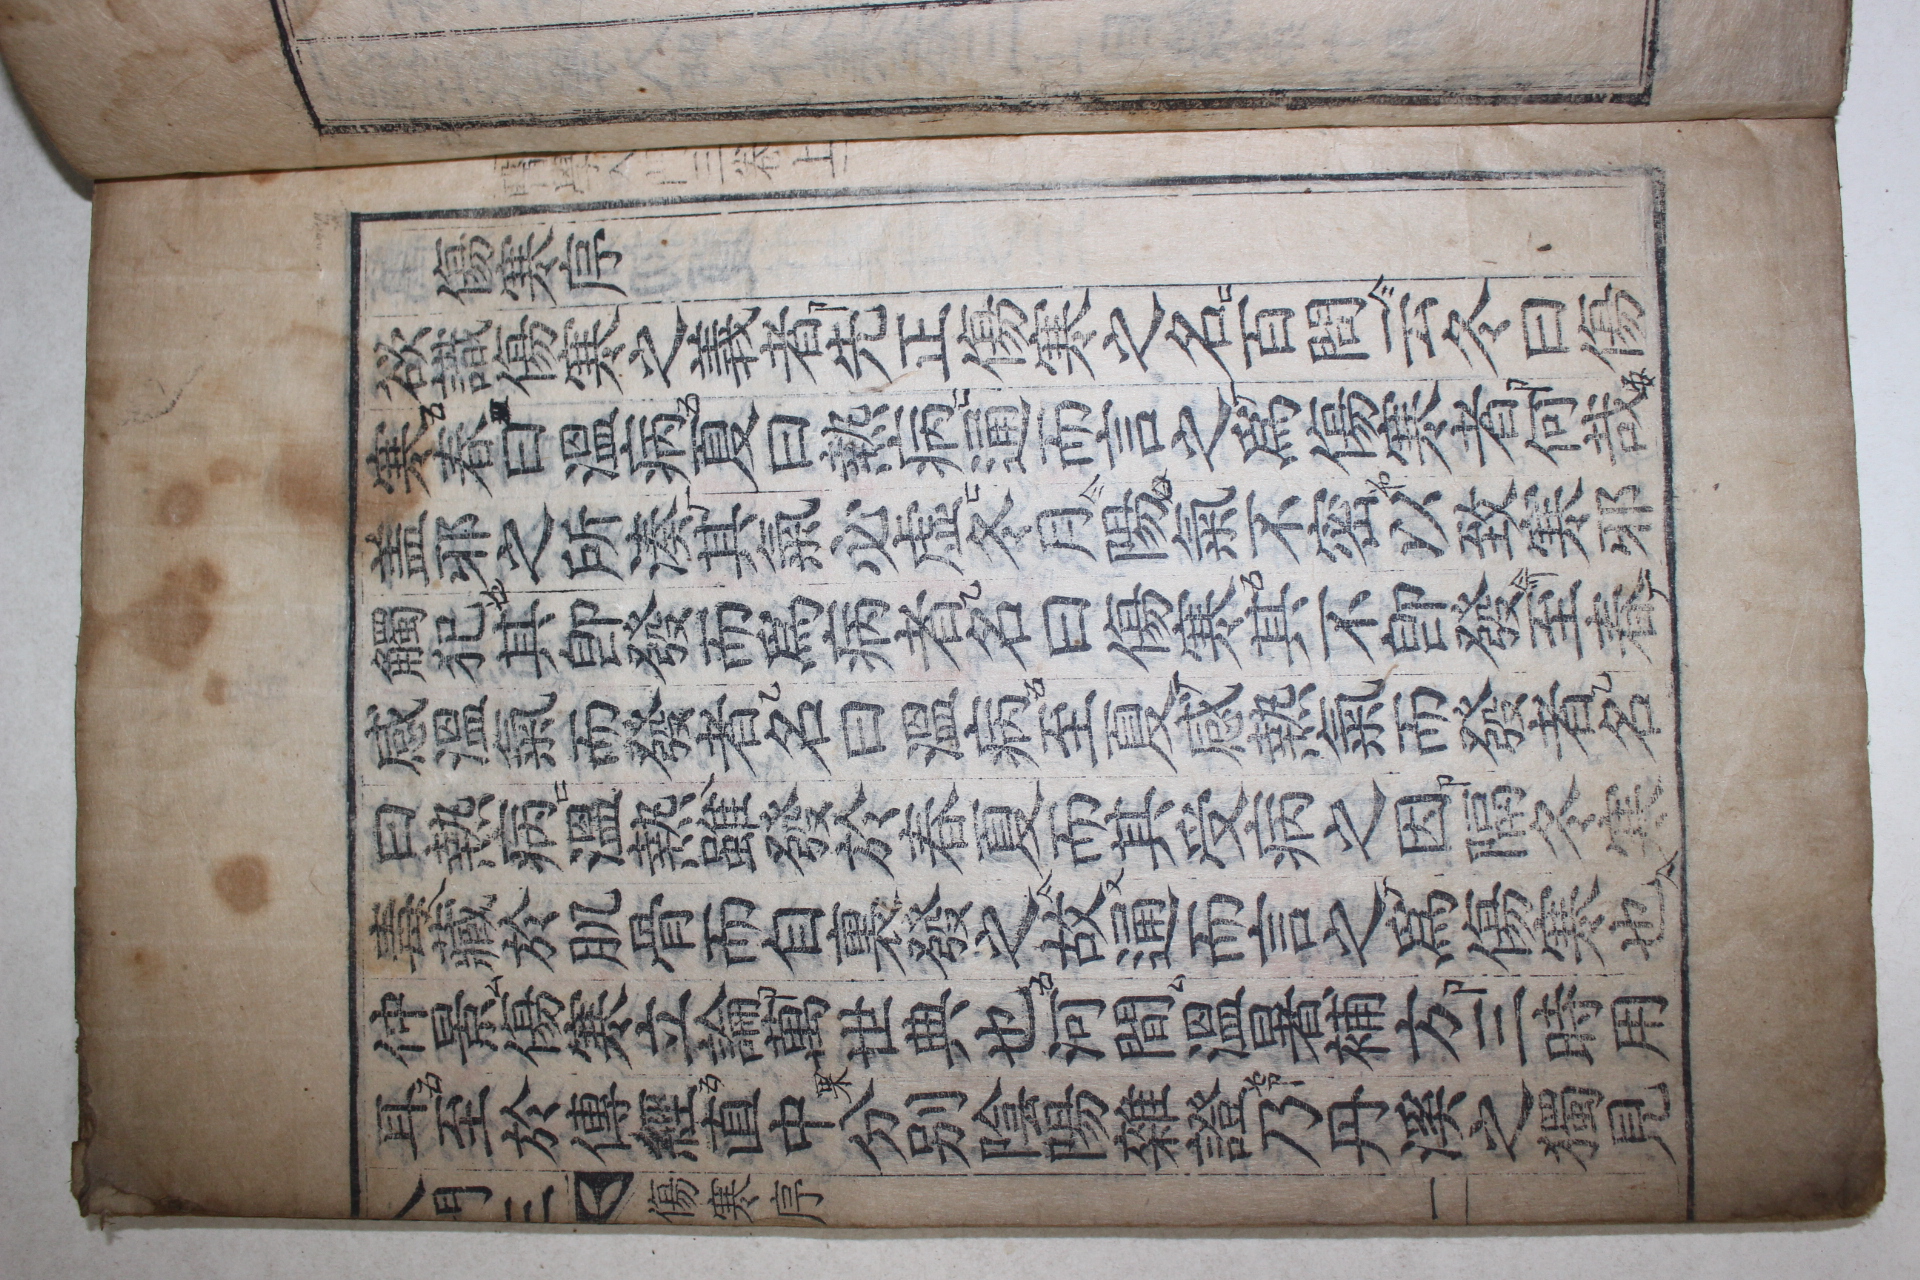 傷寒序
欲識傷寒之義者先正傷寒之名百問云冬曰傷
寒春曰溫病夏曰熱病通而言之爲傷寒者何哉
盖邪之所湊其氣必虛冬月陽氣不密以致寒邪
觸犯其卽發而爲病者名曰傷寒其不卽發至春
感溫氣而發者名曰溫病至夏感熱氣而發者名
曰熱病溫熱雖發於春夏而其受病之因隔冬寒
毒藏於肌骨而自裏發之故通而言之爲傷寒也
仲景傷寒立論萬世典也河間溫暑補方三時用
耳至於傳經直中分別陰陽雜證乃丹溪之獨見
入門三 傷寒序 一